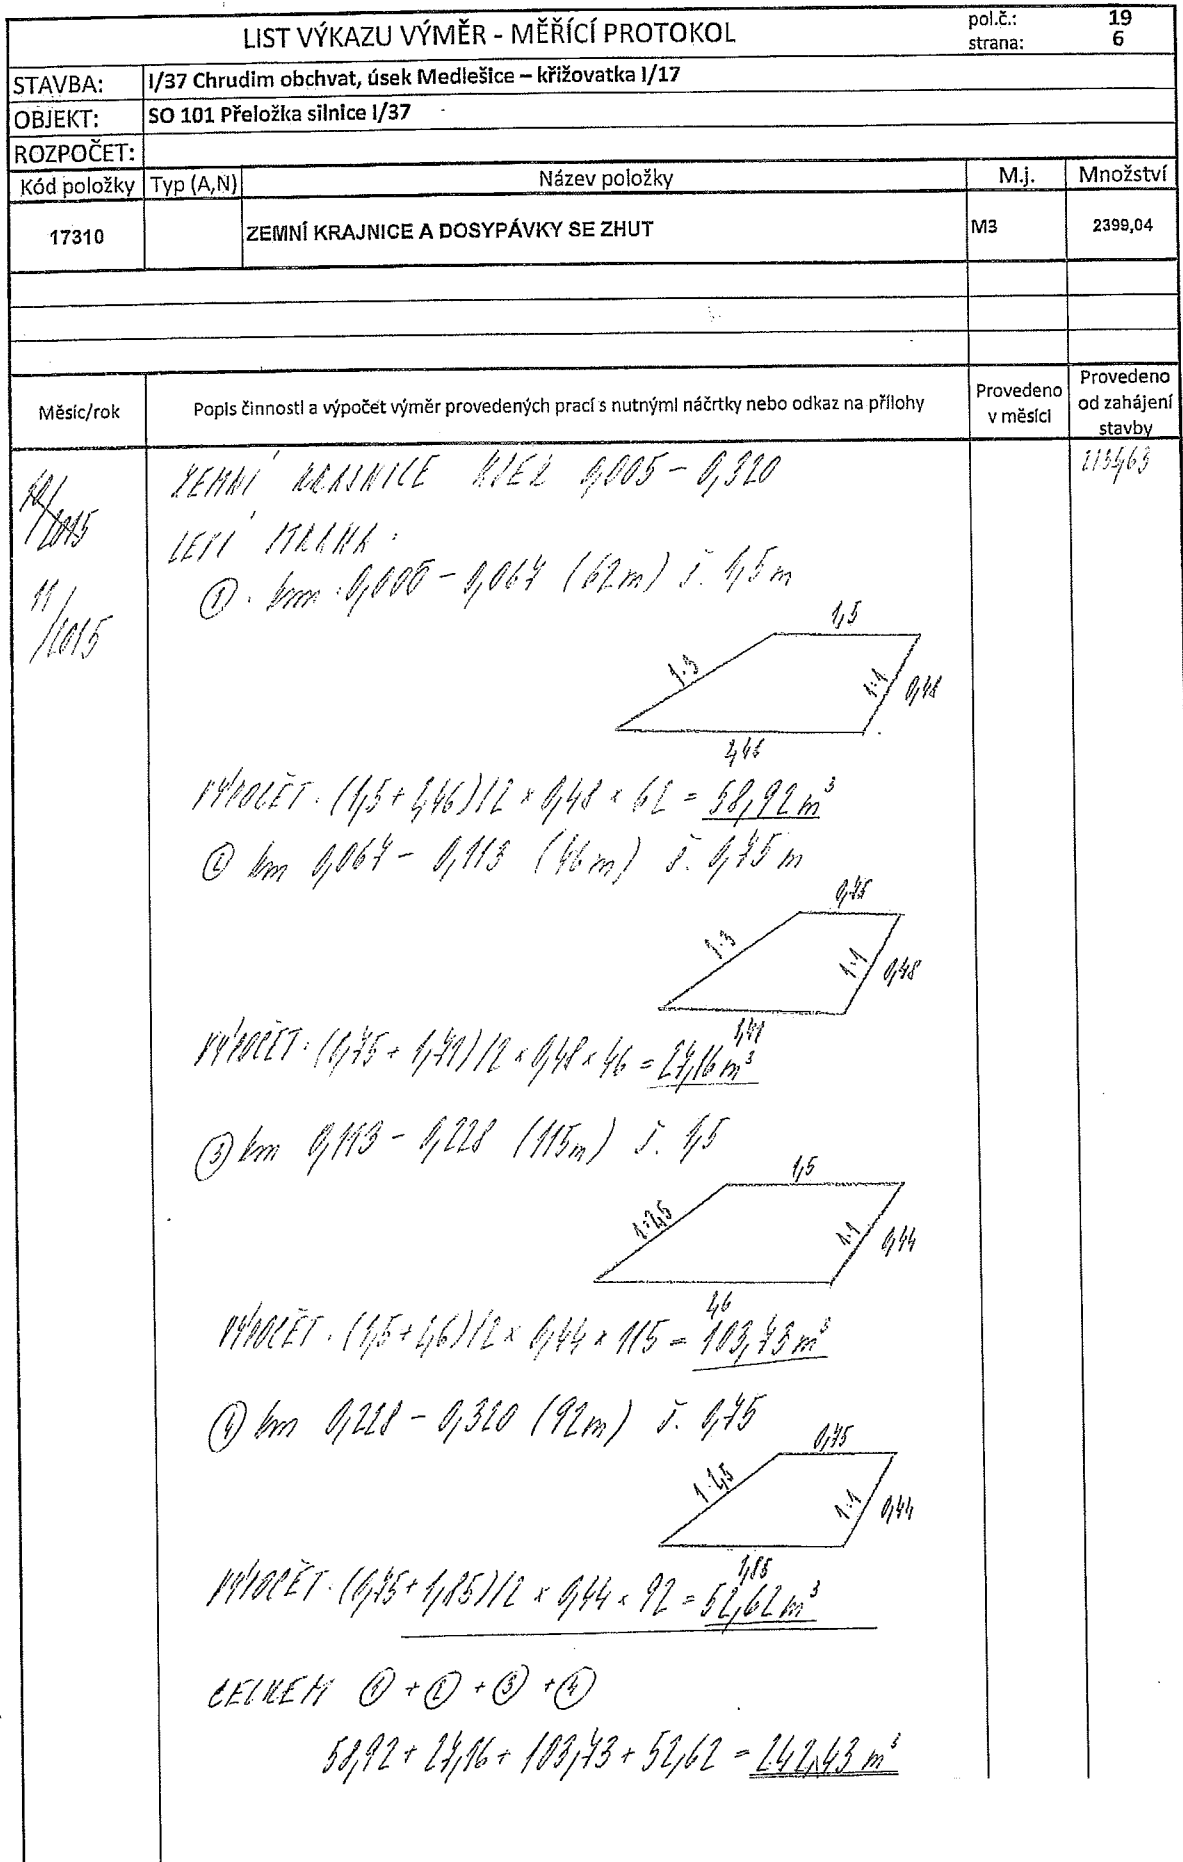 LIST VÝKAZU VÝMĚR - MĚŘÍCÍ PROTOKOL
pol.č.: 19
strana: 6
STAVBA: I/37 Chrudim obchvat, úsek Medlešice – křižovatka I/17
OBJEKT: SO 101 Přeložka silnice I/37
ROZPOČET:
Kód položky Typ (A,N) Název položky M.j. Množství
17310 ZEMNÍ KRAJNICE A DOSYPÁVKY SE ZHUT M3 2399,04
Měsíc/rok Popis činnosti a výpočet výměr provedených prací s nutnými náčrtky nebo odkaz na přílohy Provedeno v měsíci Provedeno od zahájení stavby
10/2015 ZEMNÍ KRAJNICE 0,005 - 0,320
11/2015 LEVÁ STRANA:
① km 0,005 - 0,067 (62m) š. 1,5m
1,5
1:3 1:1 0,48
2,46
VÝPOČET: (1,5+2,46)/2 × 0,48 × 62 = 58,92 m³
② km 0,067 - 0,113 (46m) š. 0,75 m
0,75
1:3 1:1 0,48
1,71
VÝPOČET: (0,75 + 1,71)/2 × 0,48 × 46 = 27,16 m³
③ km 0,113 - 0,228 (115m) š. 1,5
1,5
1:2,5 1:1 0,44
2,6
VÝPOČET: (1,5+2,6)/2 × 0,44 × 115 = 103,73 m³
④ km 0,228 - 0,320 (92m) š. 0,75
0,75
1:2,5 1:1 0,44
1,85
VÝPOČET: (0,75+1,85)/2 × 0,44 × 92 = 52,62 m³
CELKEM ① + ② + ③ + ④
58,92 + 27,16 + 103,73 + 52,62 = 242,43 m³